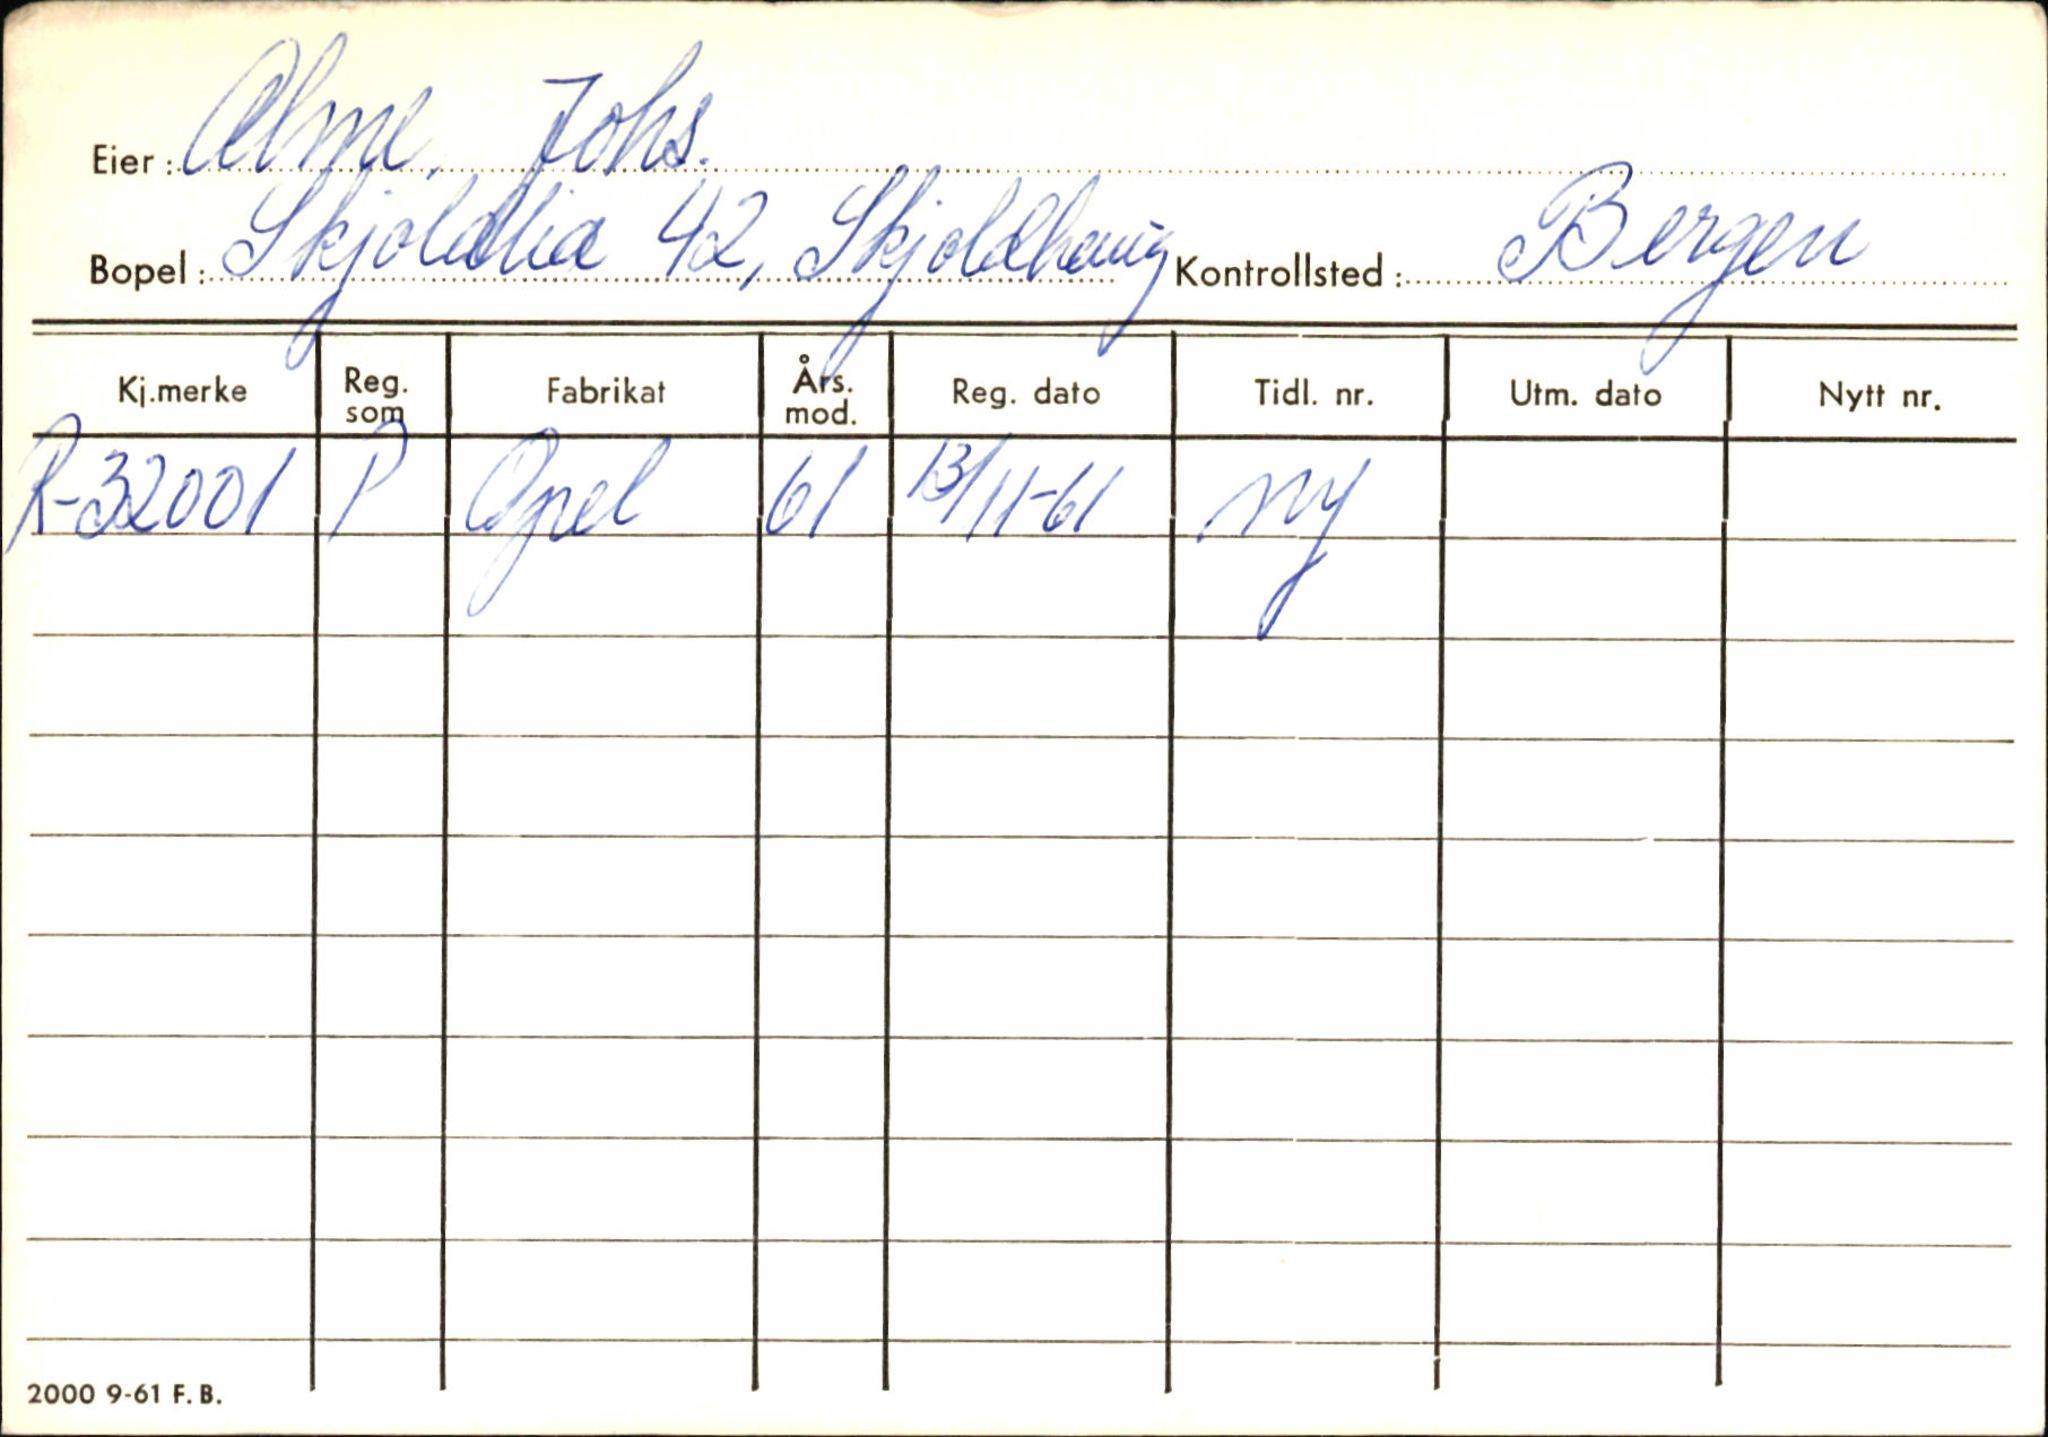 Eier: Alme, Johs.
Bopel: Skjoldlia 42, Skjoldhaug Kontrollsted: Bergen
Kj.merke Reg. som Fabrikat Års. mod. Reg. dato Tidl. nr. Utm. dato Nytt nr.
R-32001 P Opel 61 13/11-61 ny
2000 9-61 F.B.